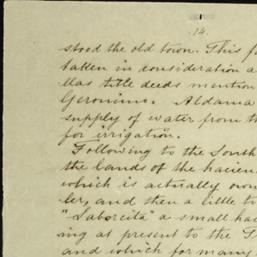 14.
stood the old town. This
taken in consideration a
llas title deeds mention
Geronimo. Aldama
supply of water from th
for irrigation.
Following to the South
the lands of the hacien
which is actually own
ler, and then a little t
"Laborcita" a small hac
ing at present to the
and which for many